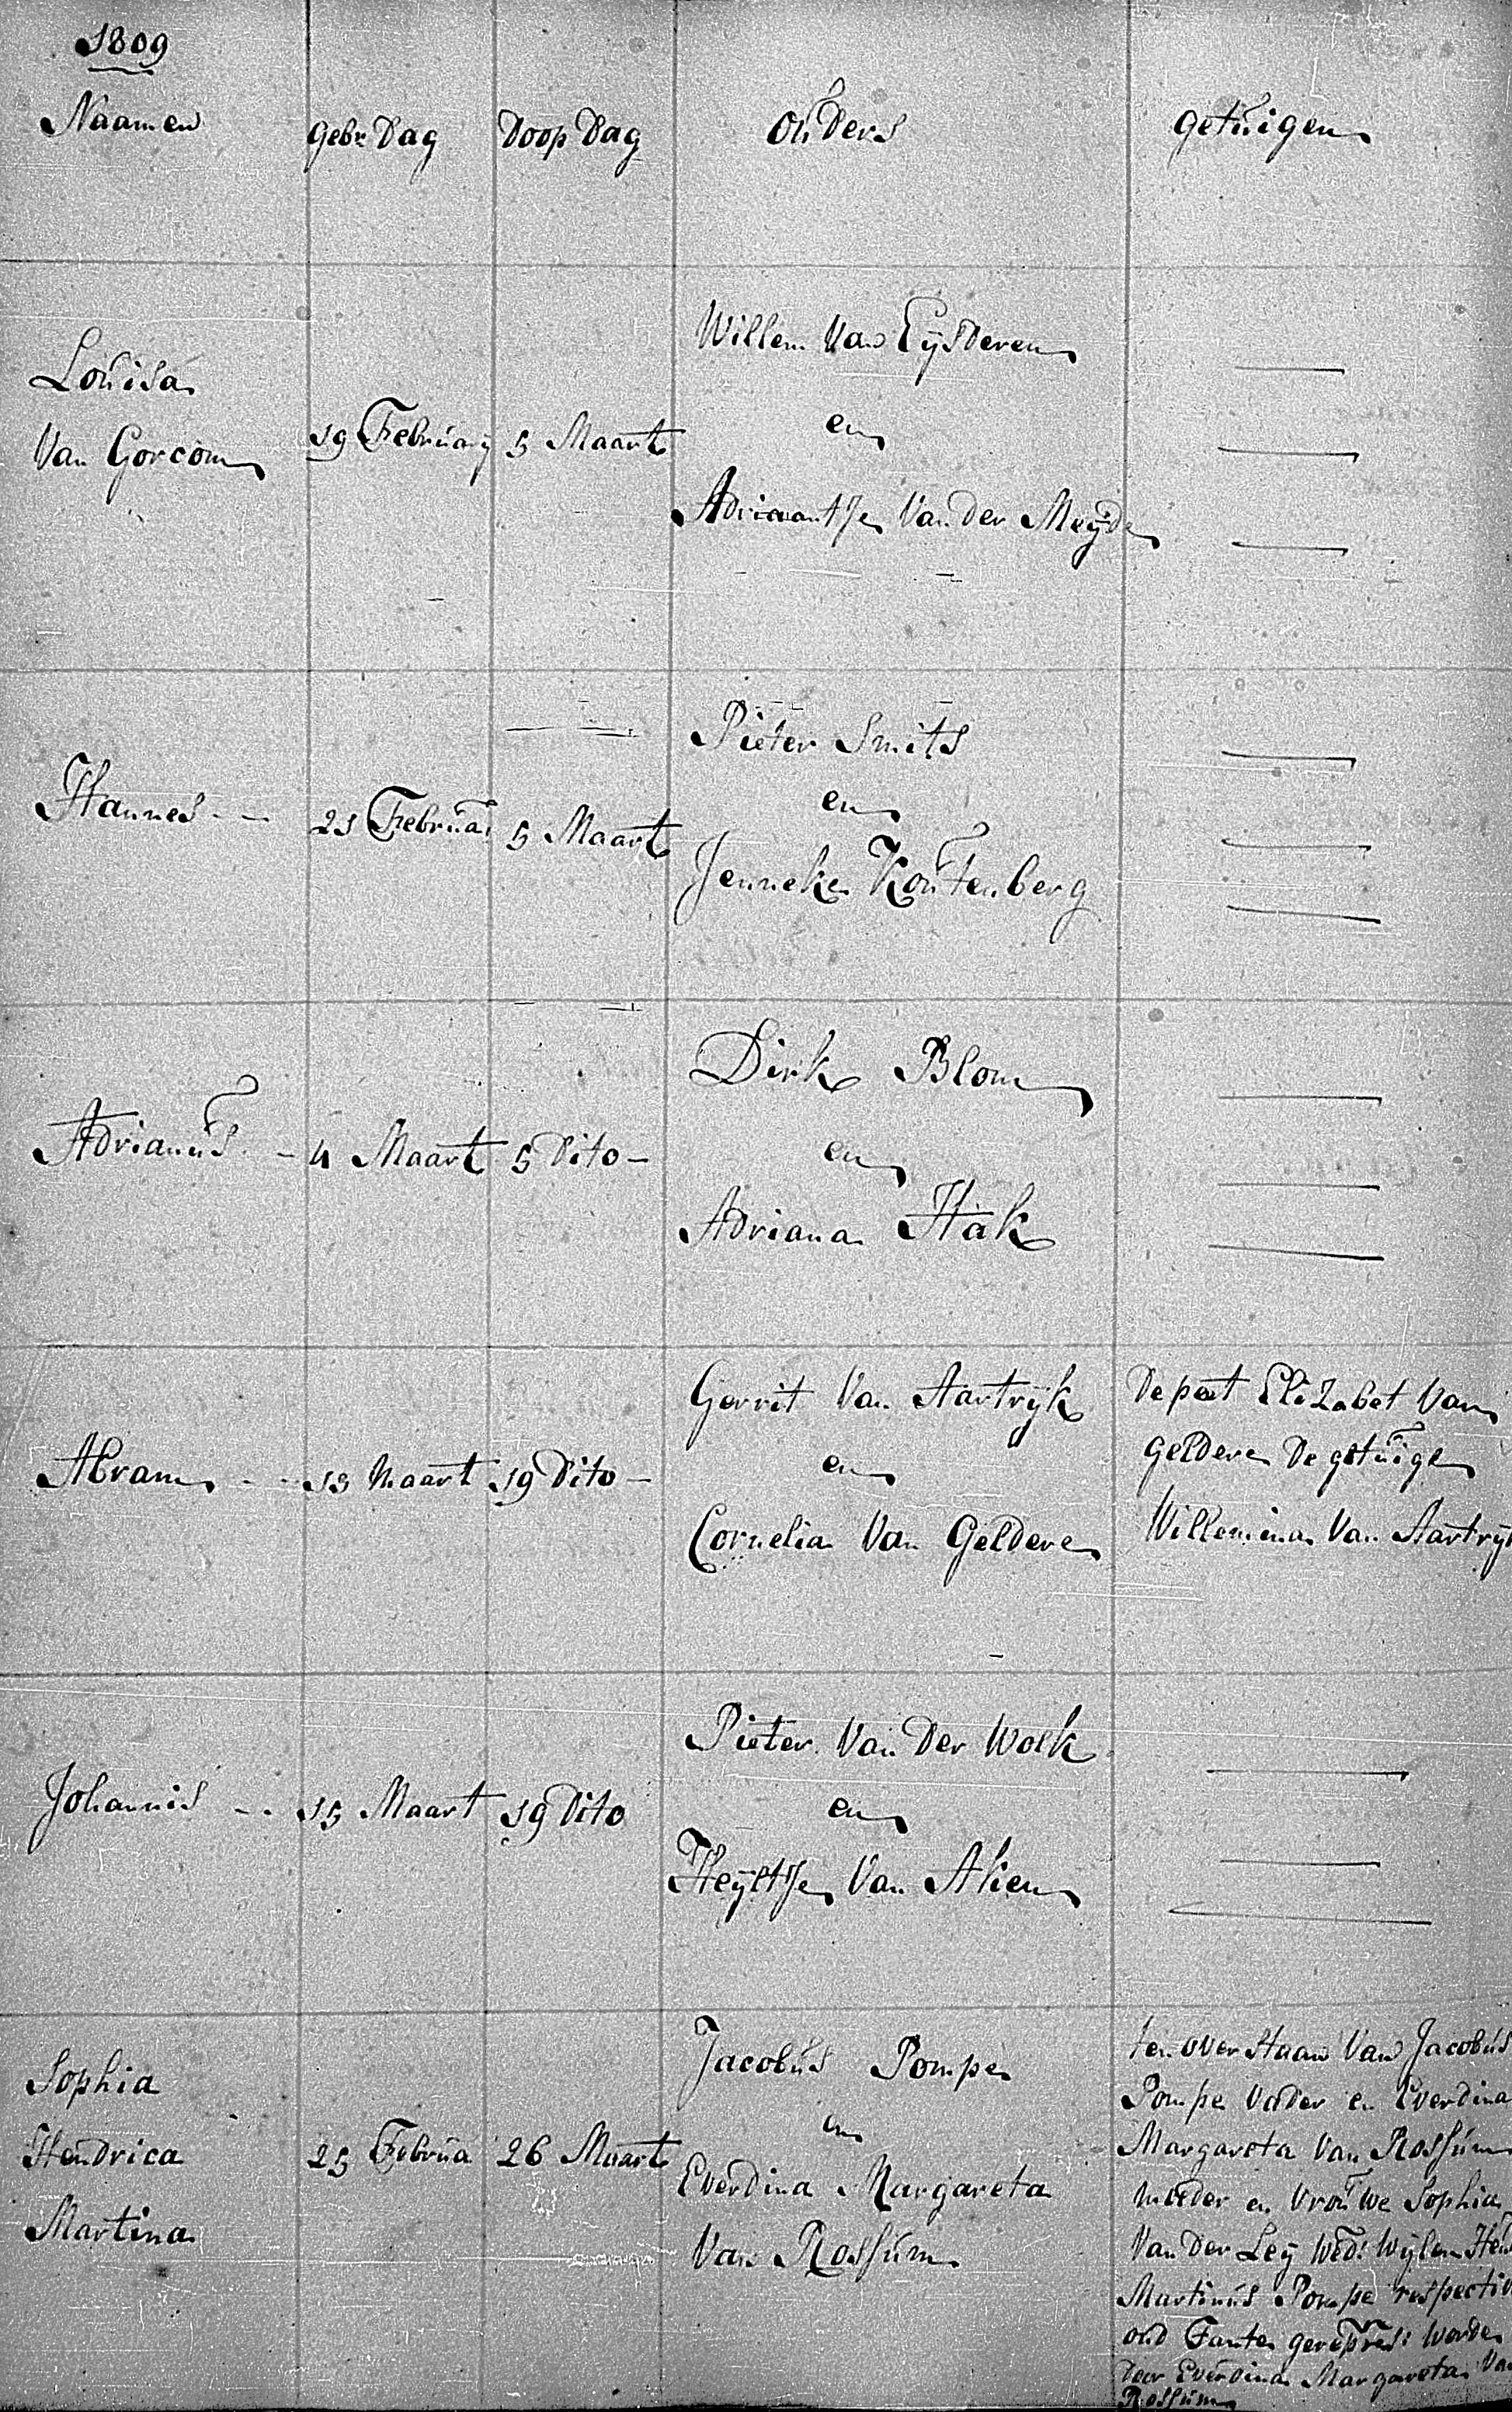 1809
Naamen
Gebr Dag
Doop Dag
Ouders
Getuigen
Louisa
Van Gorcom
19 February
5 Maart
Willem Van Eysderen
en
Adriaantje Van der Meyde
Hannes
21 Februa
5 Maart
Pieter Smits
en
Jenneke Koutenberg
Adrianus
4 Maart
5 Dito
Dirk Blom
en
Adriana Hak
Abram
13 Maart
19 Dito
Gerrit Van Aartryk
en
Cornelia Van Geldere
De peet Elizabet Van
Geldere De getuige
Willemina Van Aartryk
Johannis
15 Maart
19 Dito
Pieter Van Der Wolk
en
Heyltje Van Aken
Sophia
Hendrica
Martina
25 Februa
26 Maart
Jacobus Pompe
en
Everdina Margareta
Van Rossum
ten over staan Van Jacobus
Pompe Vader en Everdina
Margareta Van Rossum
moeder en Vrouwe Sophia
Van Der Ley Wed: Wylen
Martinus Pompe
oud Tante gerepres: Worde
Door Everdina Margareta Va
Rossum